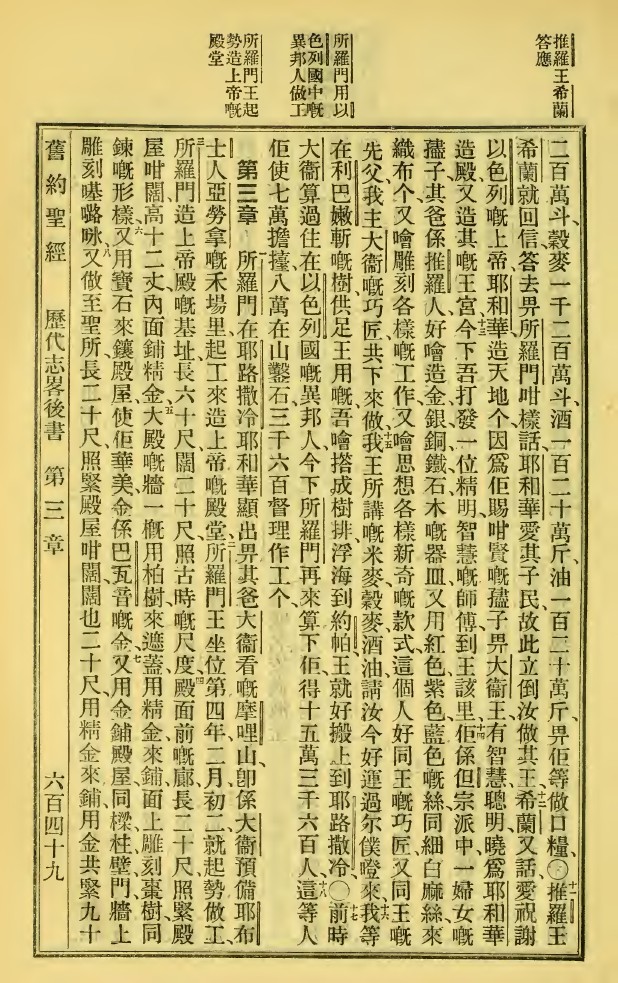 推羅王希蘭
答應
所羅門用以
色列國中嘅
異邦人做工
所羅門王起
勢造上帝嘅
殿堂
二百萬斗、穀麥一千二百萬斗、酒一百二十萬斤、油一百二十萬斤、畀佢等做口糧、〇十一推羅王
希蘭就回信答去畀所羅門咁樣話、耶和華愛其子民、故此立倒汝做其王、十二希蘭又話、愛祝謝
以色列嘅上帝耶和華、造天地个、因爲佢賜咁賢嘅孻子畀大衞王、有智慧聰明、曉爲耶和華
造殿、又造其嘅王宮、十三今下吾打發一位精明智慧嘅師傅到王該里、十四佢係但宗派中一婦女嘅
孻子、其爸係推羅人、好噲造金銀銅鐵石木嘅器皿、又用紅色紫色藍色嘅絲、同細白麻絲來
織布个、又噲雕刻各樣嘅工作、又噲思想各樣新奇嘅款式、這個人好同王嘅巧匠、又同王嘅
先父我主大衞嘅巧匠、共下來做、十五我王所講嘅米麥穀麥酒油、請汝今好運過尔僕瞪來、十六我等
在利巴嫩斬嘅樹、供足王用嘅、吾噲搭成樹排、浮海到約帕、王就好搬上到耶路撒冷、〇十七前時
大衞算過住在以色列國嘅異邦人、今下所羅門再來算下、佢得十五萬三千六百人、十八這等人
佢使七萬擔擡、八萬在山鑿石、三千六百督理作工个、
第三章 一所羅門在耶路撒冷、耶和華顯出畀其爸大衞看嘅摩哩山、卽係大衞預備、耶布
士人亞勞拿嘅禾場里、起工來造上帝嘅殿堂、二所羅門王坐位第四年二月初二、就起勢做工、
三所羅門造上帝殿嘅基址、長六十尺、闊二十尺、照古時嘅尺度、四殿面前嘅廊、長二十尺、照緊殿
屋咁闊、高十二丈、內面鋪精金、五大殿嘅牆、一概用柏樹來遮蓋、用精金來鋪、面上雕刻棗樹同
鍊嘅形樣、六又用寶石來鑲殿屋、使佢華美、金係巴瓦音嘅金、七又用金鋪殿屋、同樑柱壁門、牆上
雕刻𠸄嚕㖠、八又做至聖所、長二十尺、照緊殿屋咁闊、闊也二十尺、用精金來鋪、用金共緊九十
舊約聖經 歷代志畧後書 第三章 六百四十九